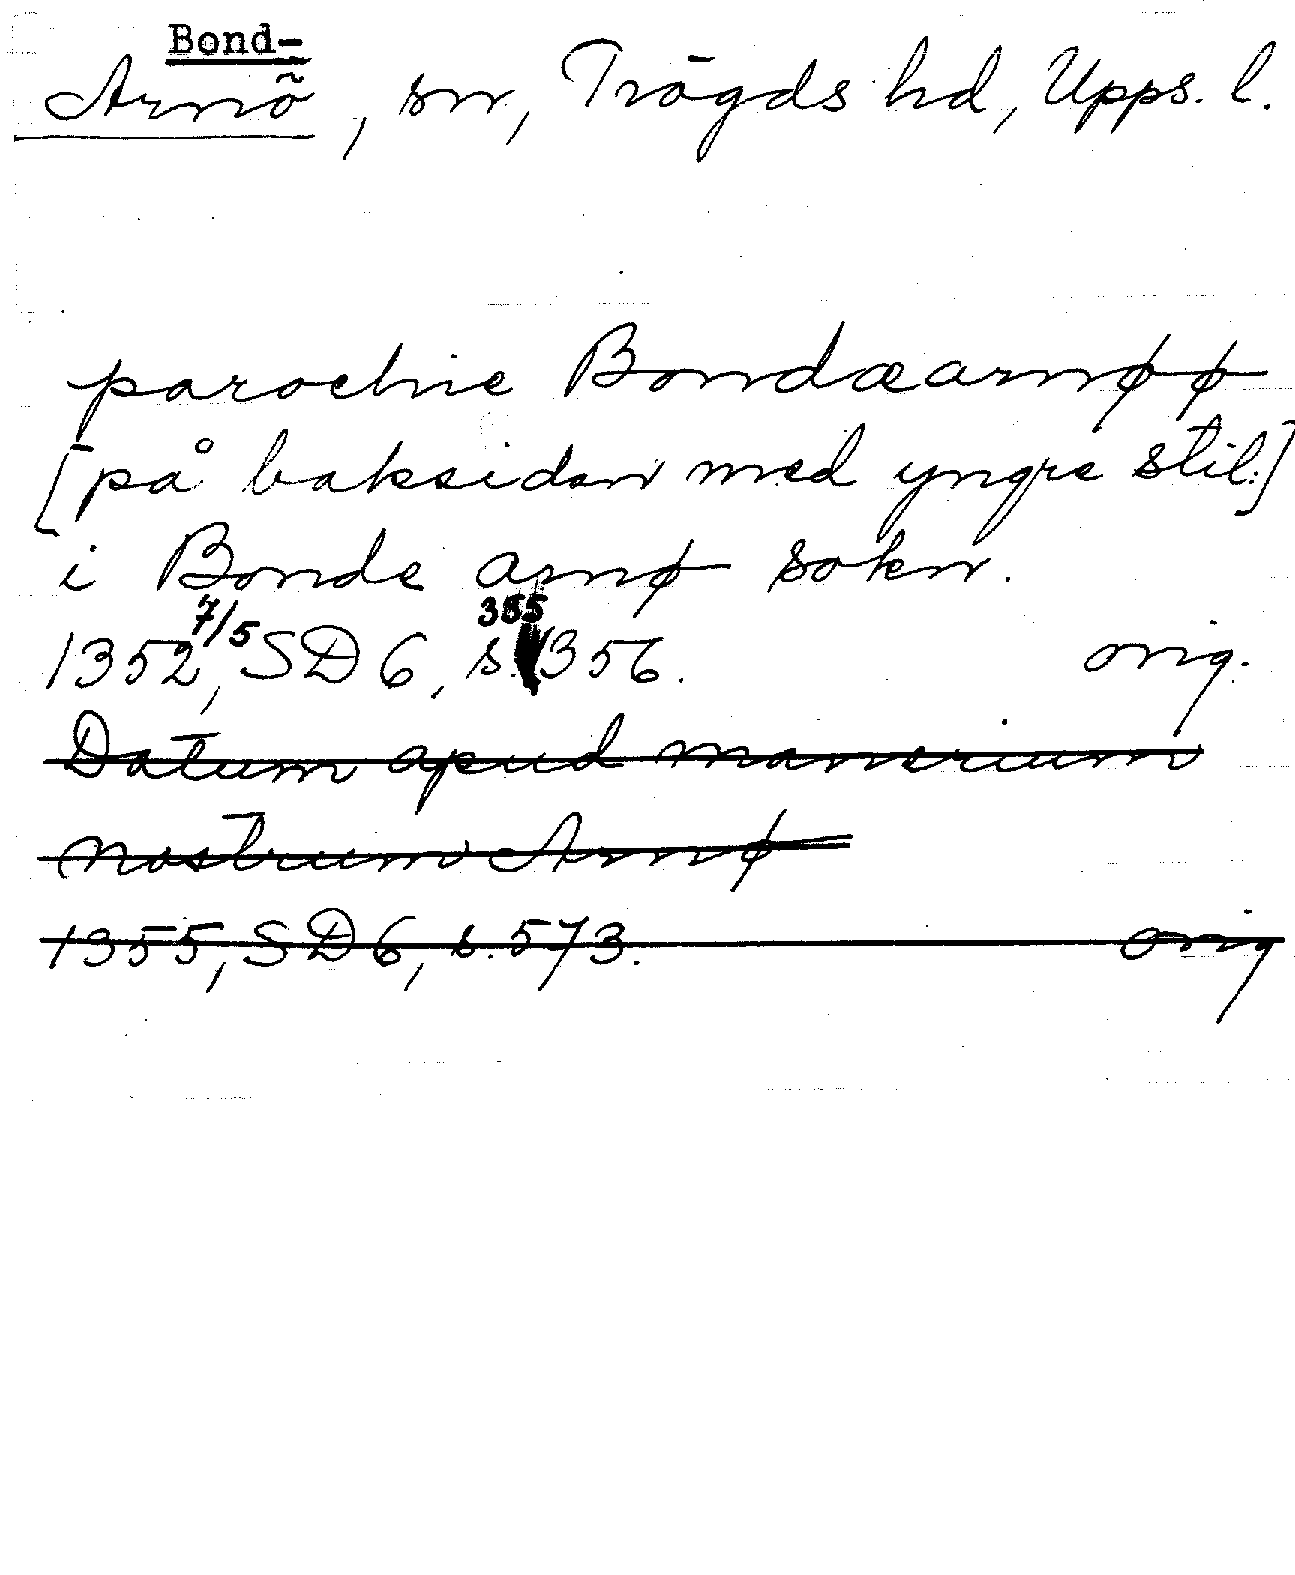 Bond-
Arnö, sn, Trögds hd, Upps. l.
parochie Bondæarnøø
[på baksidan med yngre stil:]
i Bonde arnø sokn.
7/5 355
1352, SD 6, s. 356. orig.
Datum apud manerium
nostrum Arnø
1355, SD 6, s. 573. orig